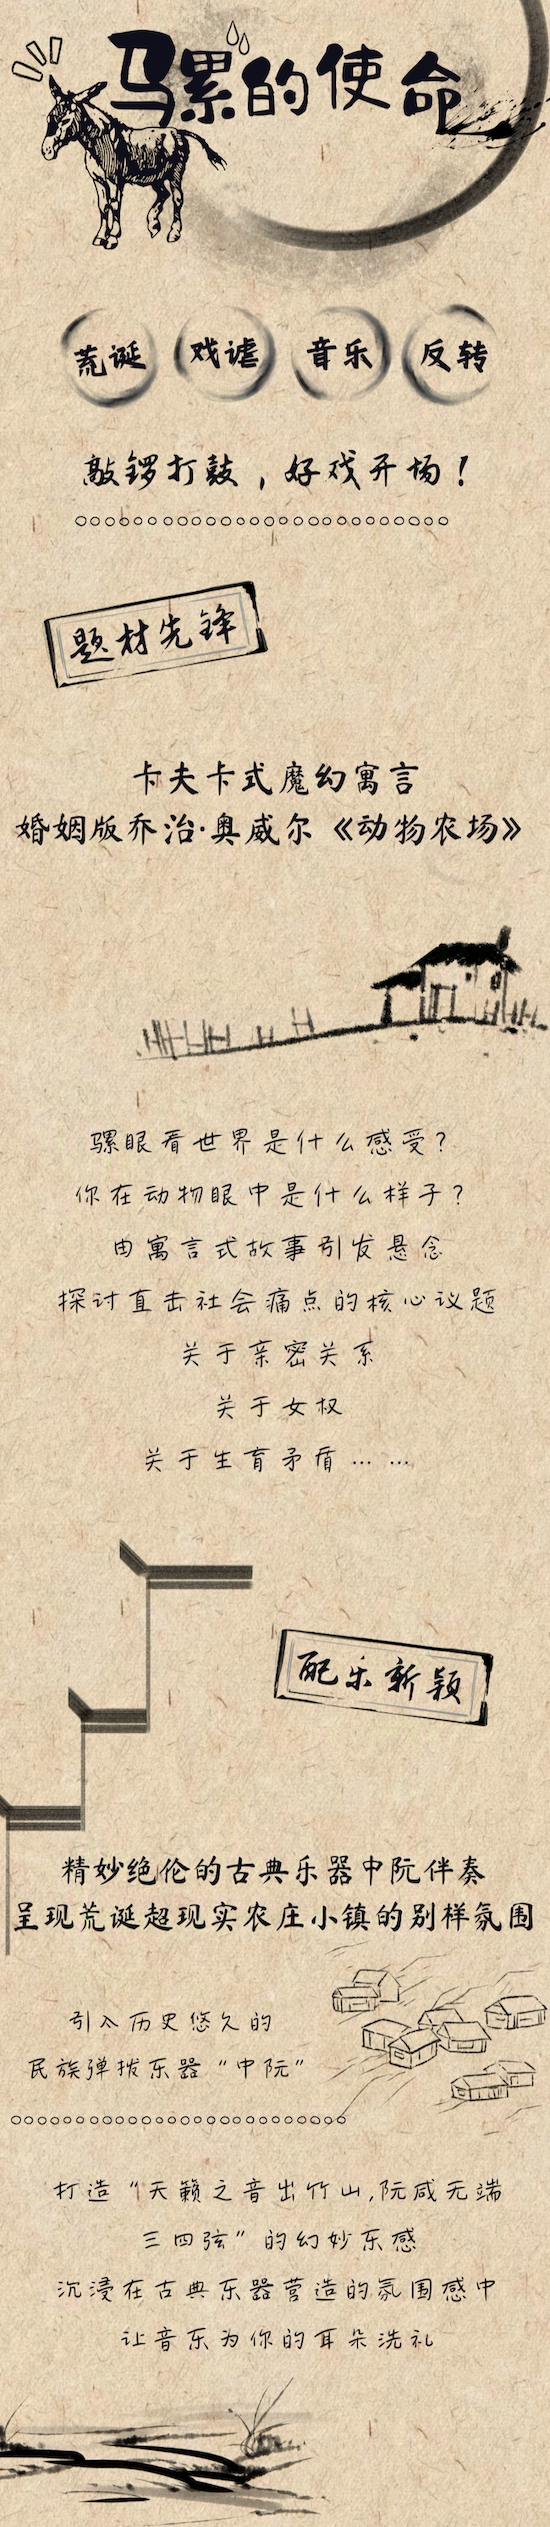 骡的使命
荒诞 戏谑 音乐 反转
敲锣打鼓，好戏开场！
题材先锋
卡夫卡式魔幻寓言
婚姻版乔治·奥威尔《动物农场》
骡眼看世界是什么感受？
你在动物眼中是什么样子？
由寓言式故事引发悬念
探讨直击社会痛点的核心议题
关于亲密关系
关于女权
关于生育矛盾……
配乐新颖
精妙绝伦的古典乐器中阮伴奏
呈现荒诞超现实农庄小镇的别样氛围
引入历史悠久的
民族弹拨乐器“中阮”
打造“天籁之音出竹山,阮咸无端
三四弦”的幻妙乐感
沉浸在古典乐器营造的氛围感中
让音乐为你的耳朵洗礼